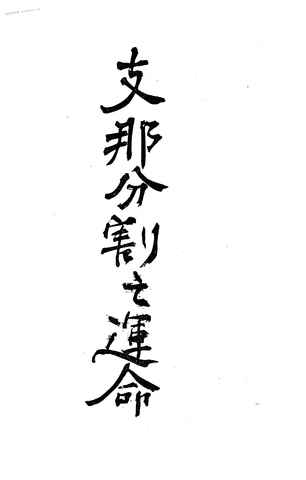 支那分割之運命